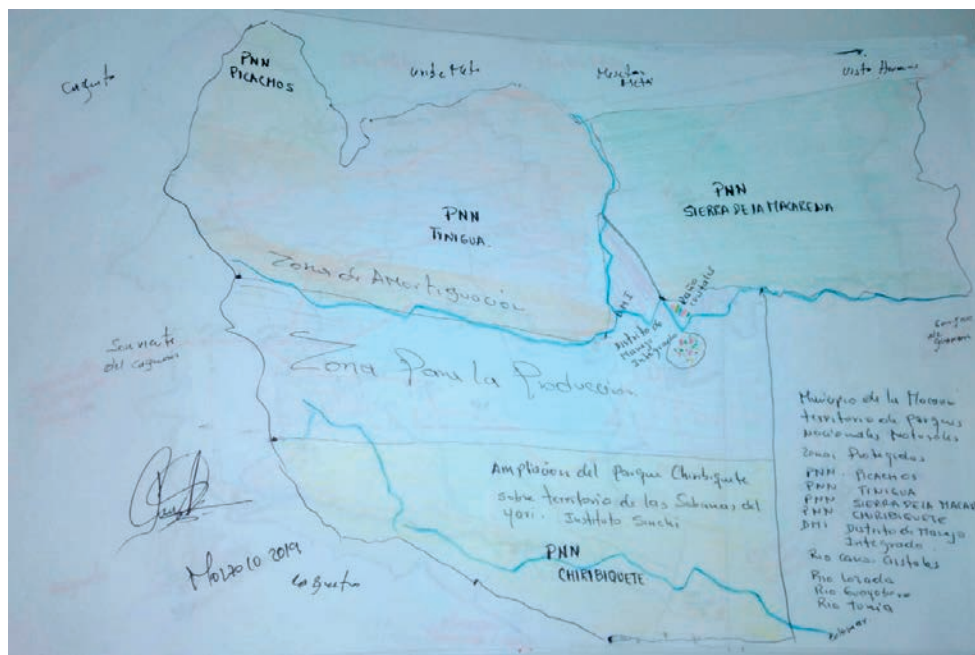 PNN
PICACHOS
Uribe Meta
Mesetas
Meta
Vista Hermosa
PNN
TINIGUA.
PNN
SIERRA DE LA MACARENA
Zona de Amortiguación
DMI
Distrito de
Manejo
Integrado
Caño
Cristales
San Vicente
del Caguan
Zona Para la Producción
Ampliación del Parque Chiribiquete
sobre territorio de las Sabanas del
Yari. Instituto Sinchi
PNN
CHIRIBIQUETE
Marzo 10 2019
Municipio de la Macarena
territorio de parques
Nacionales Naturales
Zonas Protegidas
PNN PICACHOS
PNN TINIGUA
PNN SIERRA DE LA MACAR
PNN CHIRIBIQUETE
DMI Distrito de Manejo
Integrado
Rio Losada
Rio Guayabero
Rio Tunia